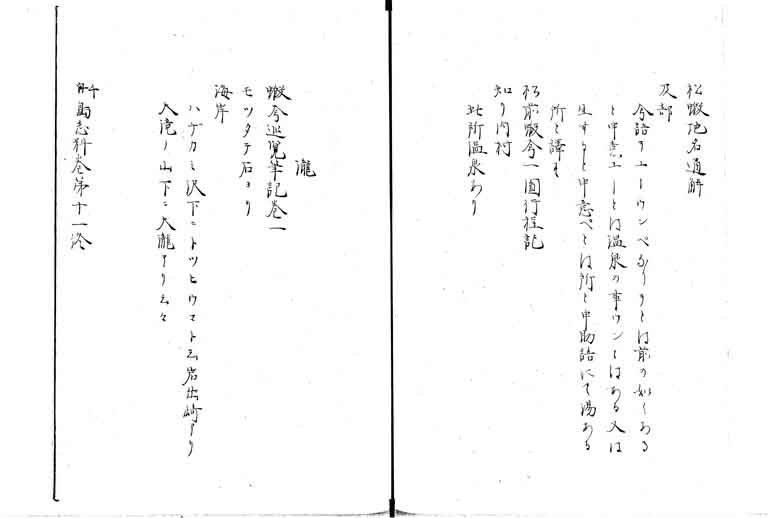 松蝦地名通解
及部
今語リユーウンペなりとは前の如くある
と申意ユーとは温泉の事ウンとはある又は
生すると申意ペとは所と申助語にて湯ある
所と譯す
松前蝦夷一圓行程記
知り内村
此所温泉あり
瀧
蝦夷巡覧筆記巻一
モツタテ石ヨリ
海岸
ハヂカミ沢下ニトツヒウマト云岩出崎アリ
大滝ノ山下ニ大瀧アリ云々
千島志料巻第十一終